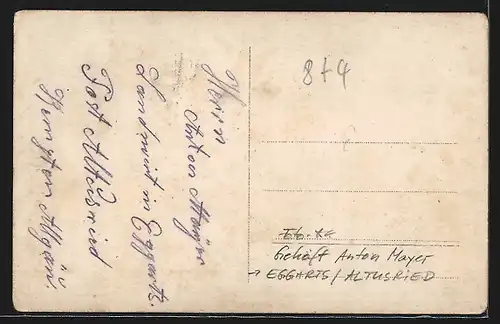 Herrn
Anton Mayer
Landwirt in Eggarts.
Post Altusried
Kempten Allgäu.
8+4
Gehöft Anton Mayer
→ EGGARTS / ALTUSRIED